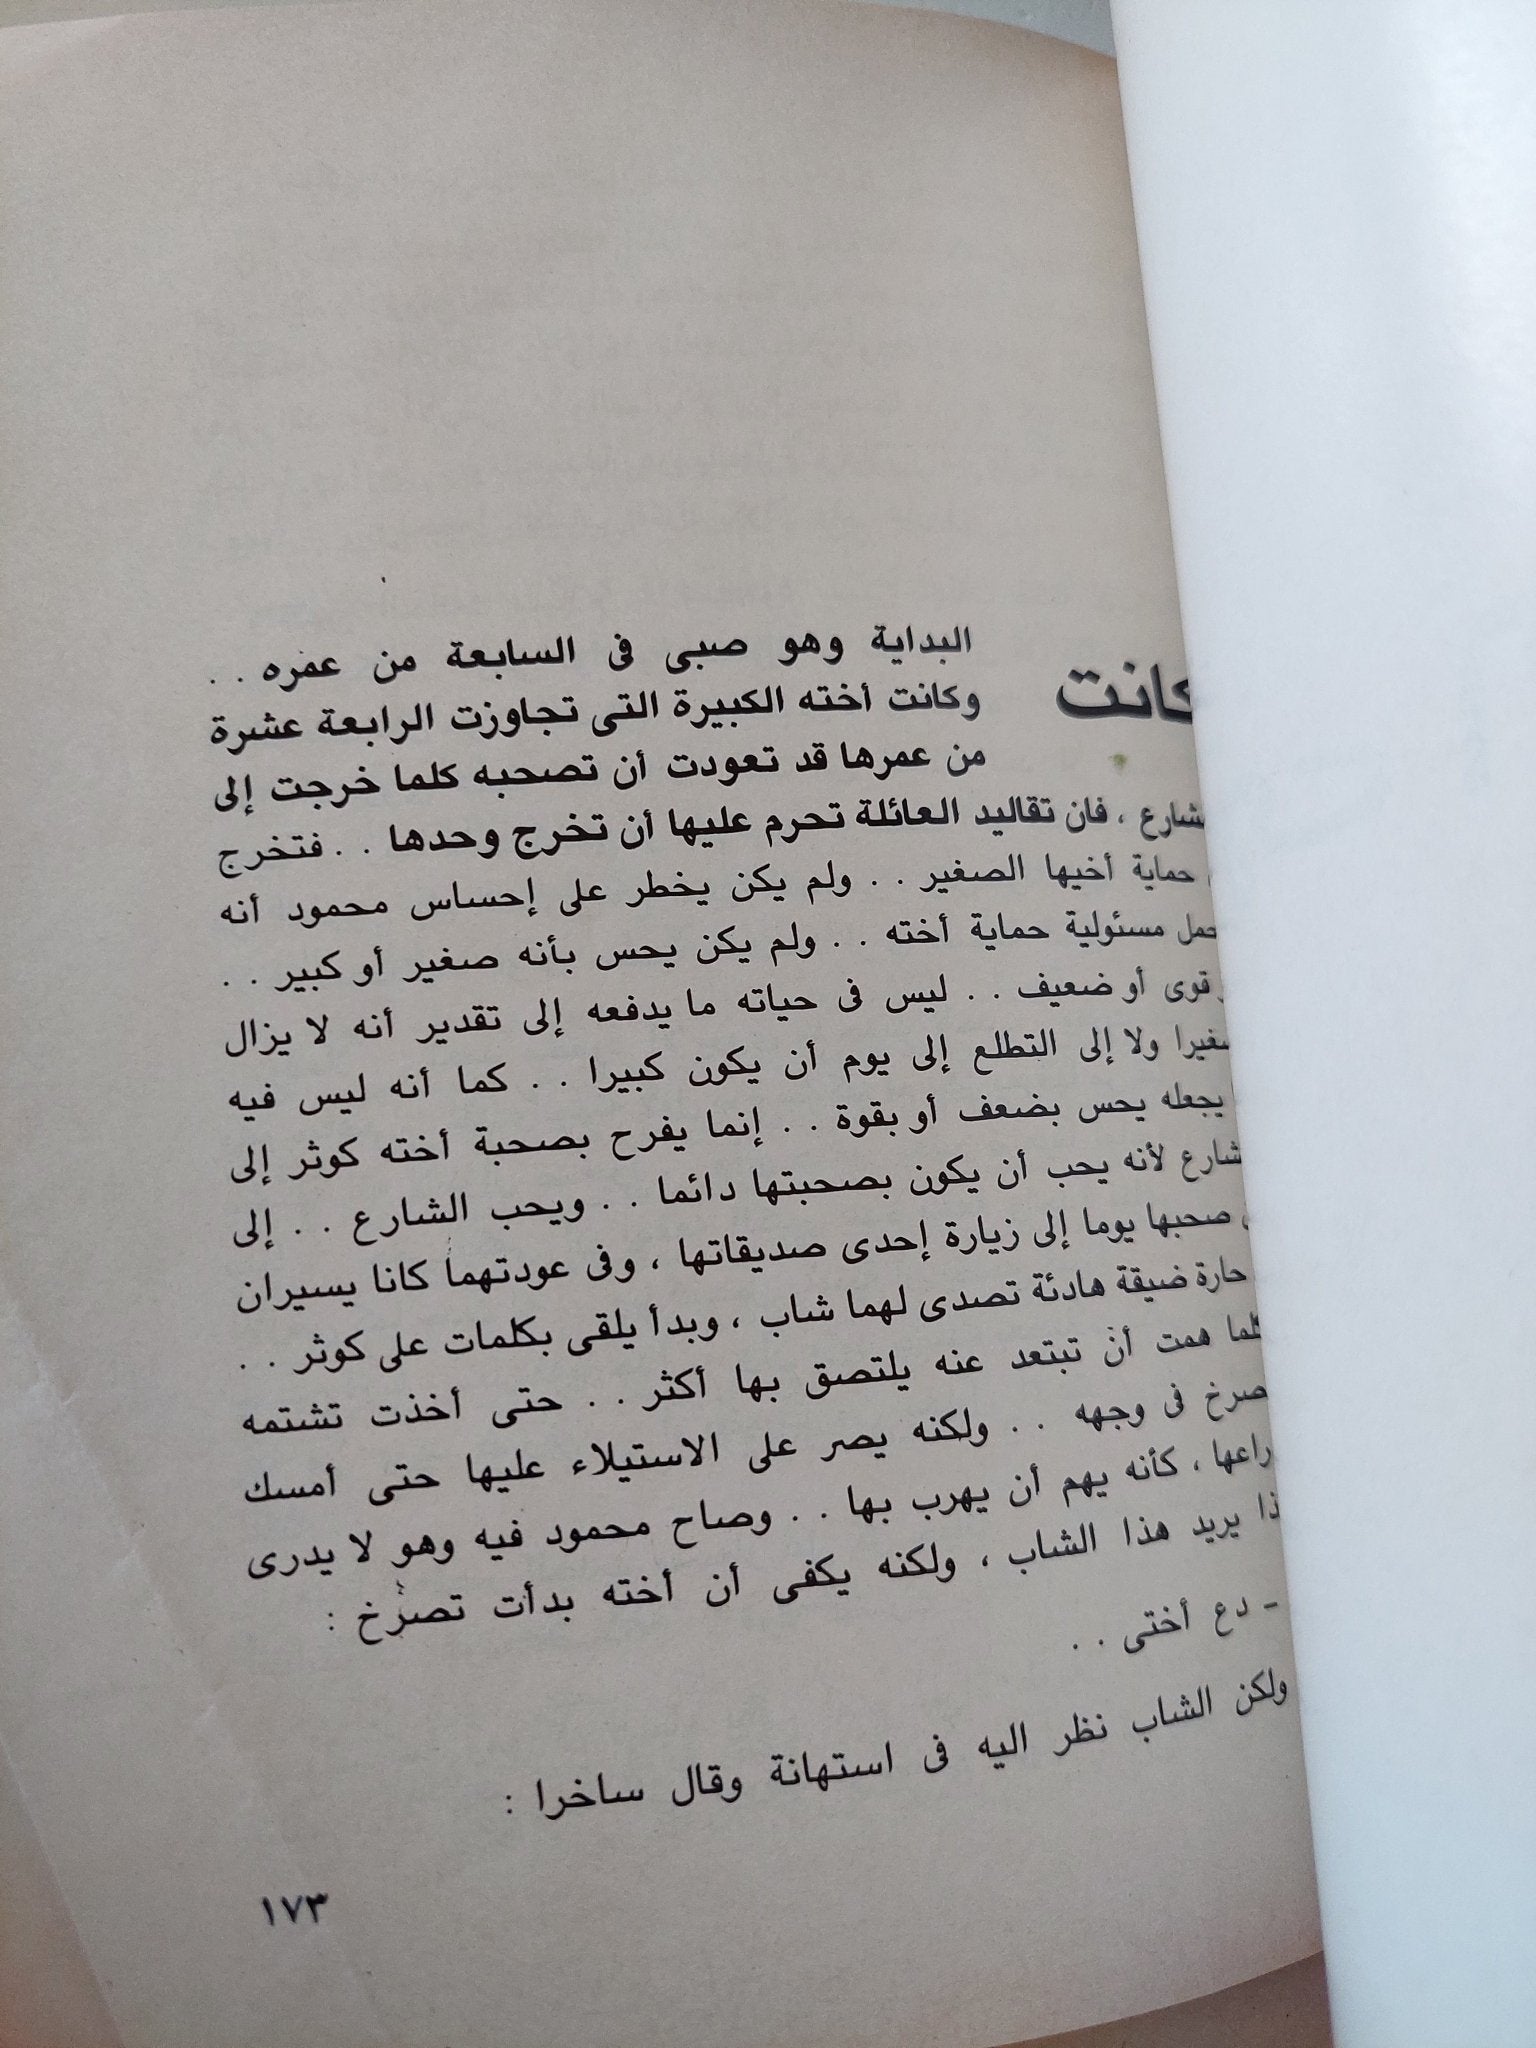 كانت
البداية وهو صبى فى السابعة من عمره . .
وكانت أخته الكبيرة التى تجاوزت الرابعة عشرة
من عمرها قد تعودت أن تصحبه كلما خرجت إلى
شارع ، فان تقاليد العائلة تحرم عليها أن تخرج وحدها . . فتخرج
حماية أخيها الصغير . . ولم يكن يخطر على إحساس محمود أنه
مسئولية حماية أخته . . ولم يكن يحس بأنه صغير أو كبير . .
قوى أو ضعيف . . ليس فى حياته ما يدفعه إلى تقدير أنه لا يزال
ولا إلى التطلع إلى يوم أن يكون كبيرا . . كما أنه ليس فيه
يجعله يحس بضعف أو بقوة . . إنما يفرح بصحبة أخته كوثر إلى
شارع لأنه يحب أن يكون بصحبتها دائما . . ويحب الشارع . . إلى
صحبها يوما إلى زيارة إحدى صديقاتها ، وفى عودتهما كانا يسيران
حارة ضيقة هادئة تصدى لهما شاب ، وبدأ يلقى بكلمات على كوثر . .
كلما همت أن تبتعد عنه يلتصق بها أكثر . . حتى أخذت تشتمه
صرخ فى وجهه . . ولكنه يصر على الاستيلاء عليها حتى أمسك
راعها ، كأنه يهم أن يهرب بها . . وصاح محمود فيه وهو لا يدرى
ذا يريد هذا الشاب ، ولكنه يكفى أن أخته بدأت تصرخ :
- دع أختى . .
ولكن الشاب نظر اليه فى استهانة وقال ساخرا :
١٧٣